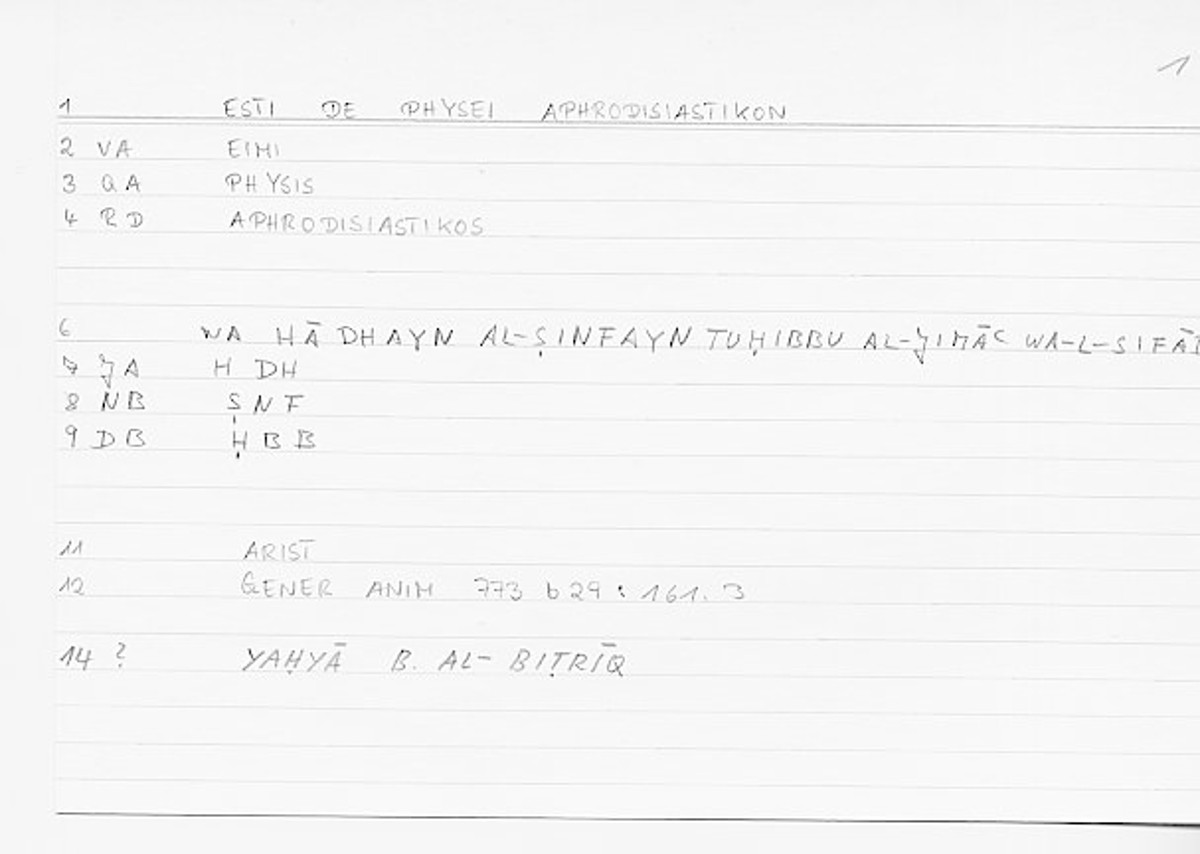 1
1 ESTI DE PHYSEI APHRODISIASTIKON
2 VA EIMI
3 QA PHYSIS
4 RD APHRODISIASTIKOS
6 WA HĀDHAYN AL-ṢINFAYN TUḤIBBU AL-ǦIMĀʿ WA-L-SIFĀD
7 ǦA H DH
8 NB Ṣ N F
9 DB Ḥ B B
11 ARIST
12 GENER ANIM 773 b 29 : 161. 3
14 ? YAḤYĀ B. AL-BIṬRĪQ